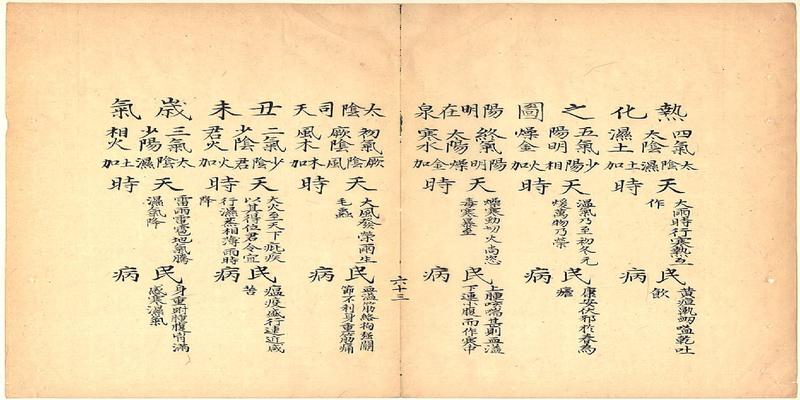 熱化之圖陽明在泉
四氣
太陰
濕土
太陰濕土加
天時
大雨時行寒熱互
作
民病
黃疸衂嗌乾吐
飲
五氣
陽明
燥金
少陽相火加
天時
溫氣乃至初冬元
煖萬物乃榮
民病
康安伏邪於春為
瘧
終氣
太陽
寒水
陽明燥金加
天時
燥寒勁切火尚恣
毒寒暴至
民病
上腫咳喘甚則血溢
下連小腹而作寒中
六十三
太陰司天丑未歲氣
初氣
厥陰
風木
厥陰風木加
天時
大風發榮雨生
毛蟲
民病
血溢筋絡拘強關
節不利身重筋痛
二氣
少陰
君火
少陰君火加
天時
大火至天下疵疾
以其得位君令宜
行濕蒸相薄雨時
降
民病
瘟疫盛行遠近咸
苦
三氣
少陽
相火
太陰濕土加
天時
雷雨電雹地氣騰
濕氣降
民病
身重胕腫腹胷滿
感寒濕氣